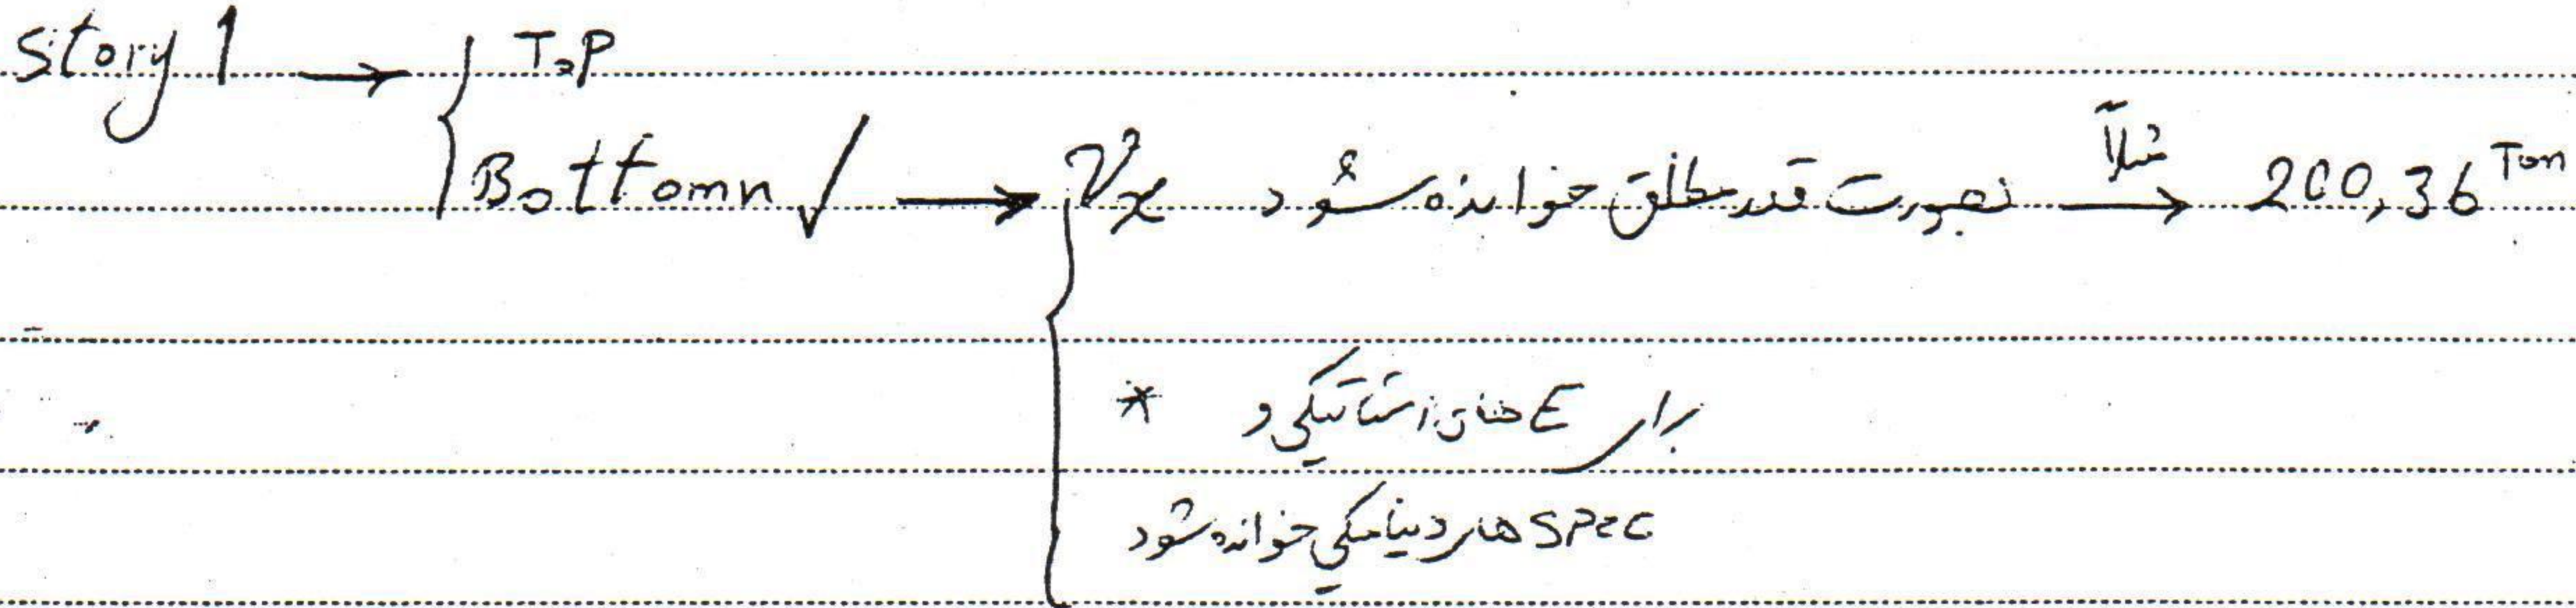 Story 1 → { Top
Bottomn ✓ → { Vx بصورت قدر مطلق خوانده شود مثلاً → 200,36 Ton
* برای E های استاتیکی و
Spec های دینامیکی خوانده شود